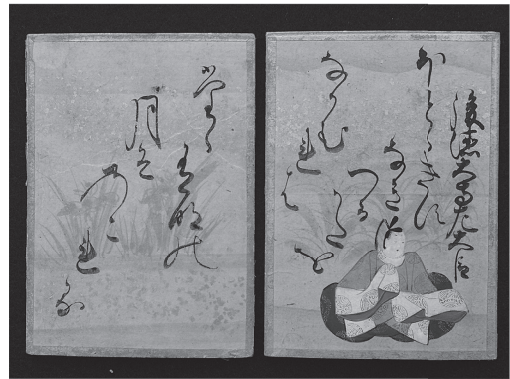 後徳大寺左大臣
ほとゝきす
なき
つる
かたを
なかむ
れは
たゝ
有明の
月そ
のこ
れる